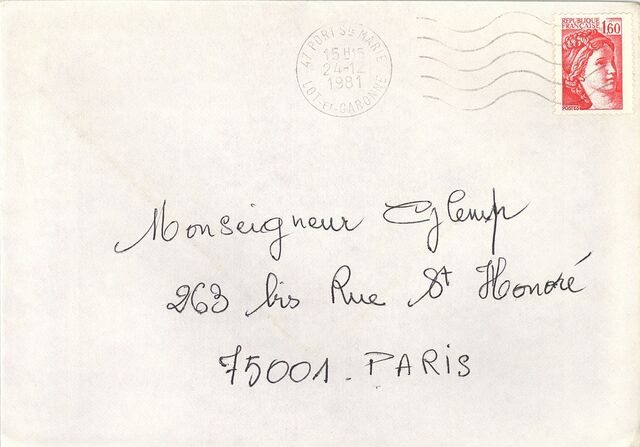 47 PORT Ste MARIE
15 H 15
24-12
1981
LOT-et-GARONNE
REPUBLIQUE
FRANÇAISE
1,60
POSTES
Monseigneur Glemp
263 bis Rue St Honoré
75001. PARIS